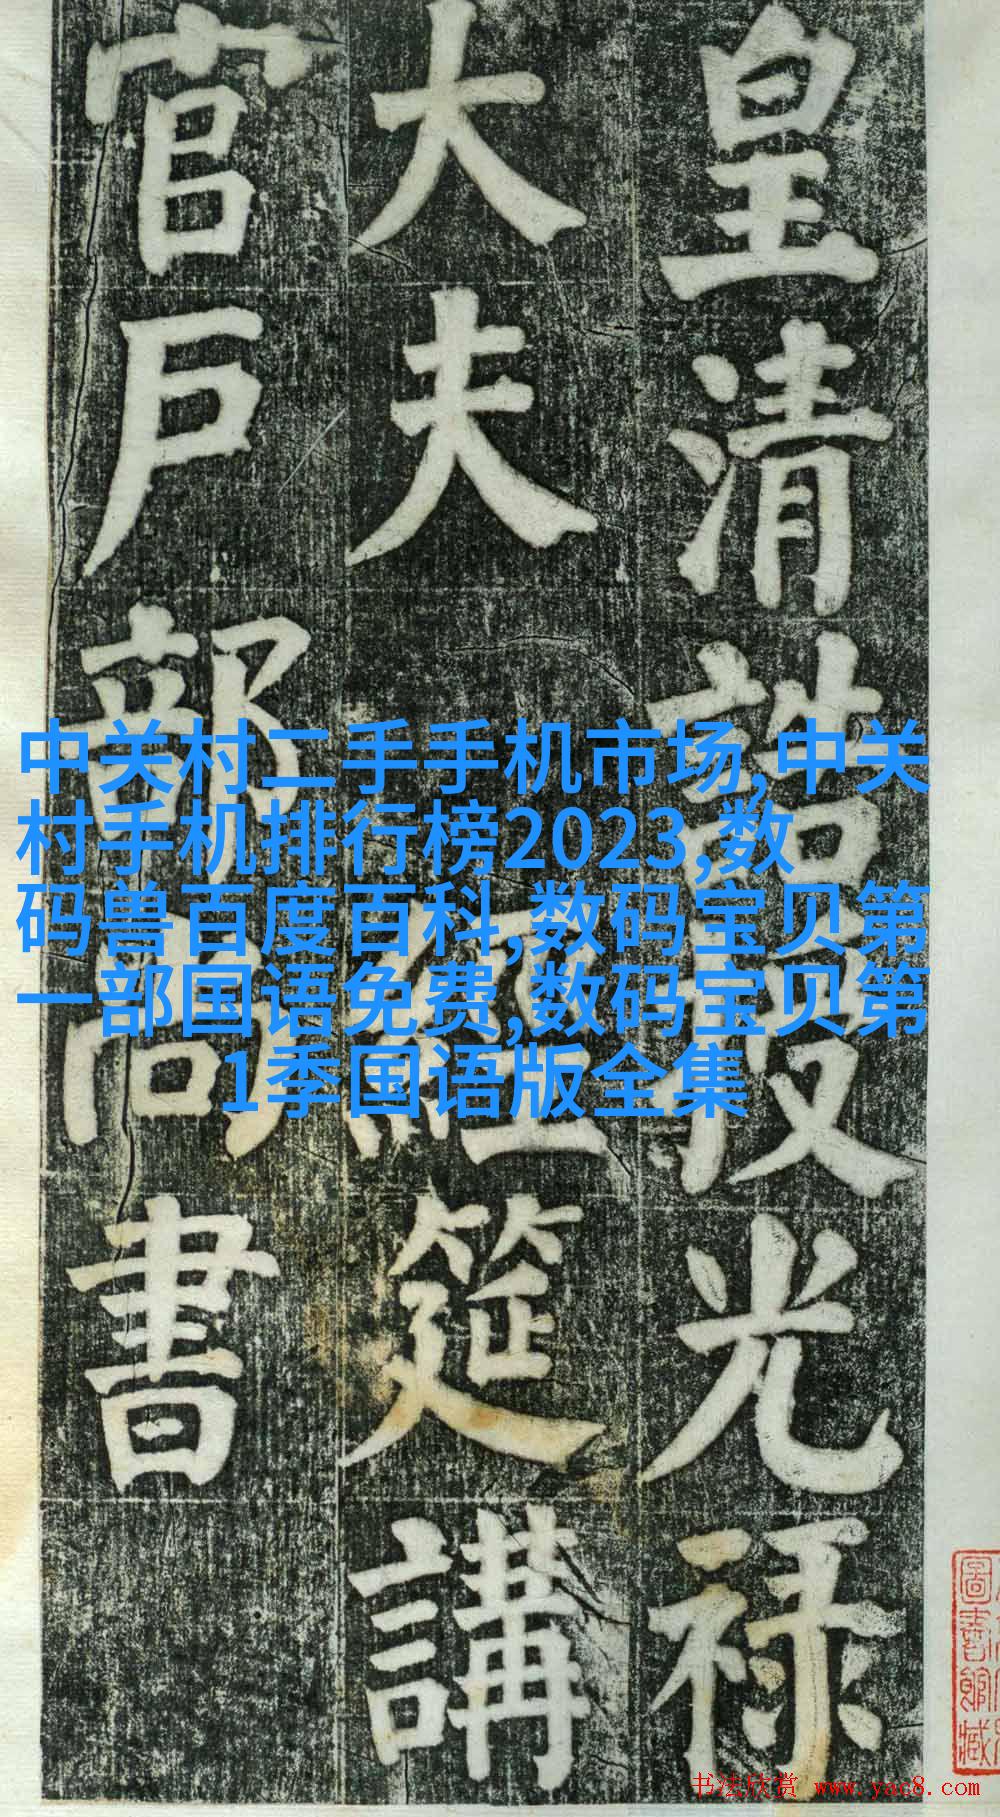 皇清誥授光祿
大夫經筵講
官戶部尚書
中关村二手手机市场,中关
村手机排行榜2023,数
码兽百度百科,数码宝贝第
一部国语免费,数码宝贝第
1季国语版全集
圖書館藏
书法欣赏 www.yac8.com